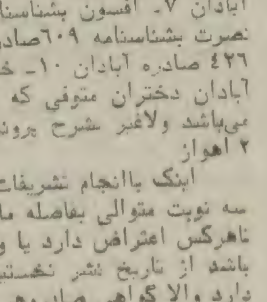 آبادان ۷ـ افسون بشناسنا
نصرت بشناسنامه ۶۰۹ صادر
۴۲۶ صادره آبادان ۱۰ـ خ
آبادان دختران متوفی که
میباشد ولاغیر بشرح پرون
۲ اهواز
اینک باانجام تشریفات
سه نوبت متوالی بفاصله ما
تاهرکس اعتراض دارد یا و
باشد از تاریخ نشر نخستی
دارد والا گواهی صادر